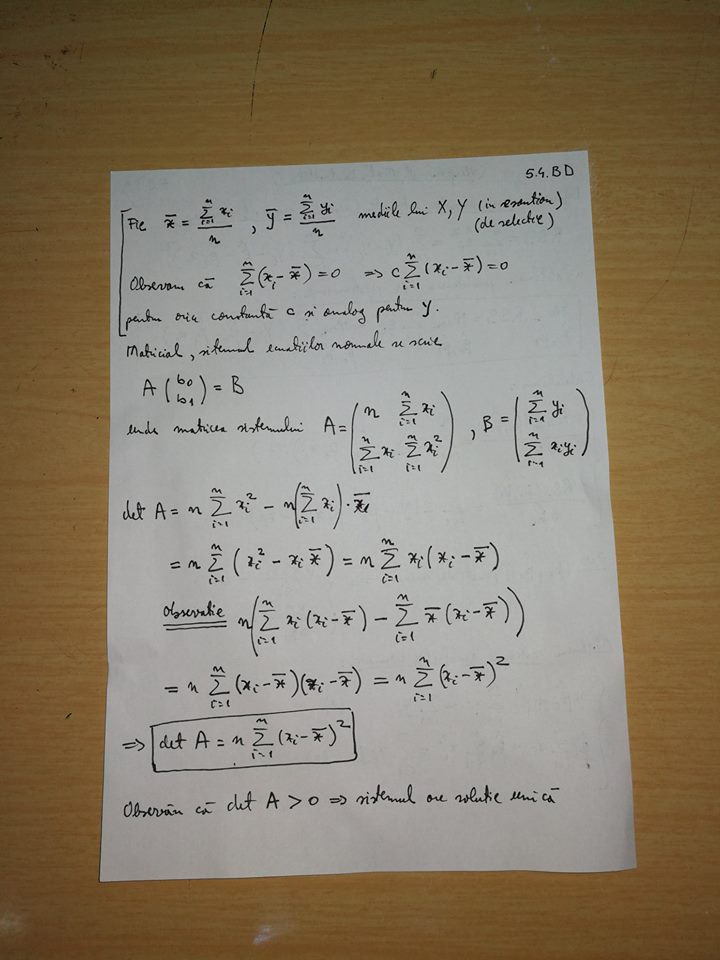 5.4.BD
Fie x̄ = ∑_{i=1}^{n} x_i / n , ȳ = ∑_{i=1}^{n} y_i / n mediile lui X, Y (in esantion)
(de selectie)
Observam că ∑_{i=1}^{n} (x_i − x̄) = 0 ⇒ c ∑_{i=1}^{n} (x_i − x̄) = 0
pentru orice constantă c și analog pentru y.
Matricial, sistemul ecuatiilor normale se scrie
A (b0 b1) = B
unde matricea sistemului A = (n ∑_{i=1}^{n} x_i ; ∑_{i=1}^{n} x_i ∑_{i=1}^{n} x_i^2) , B = (∑_{i=1}^{n} y_i ; ∑_{i=1}^{n} x_i y_i)
det A = n ∑_{i=1}^{n} x_i^2 − n (∑_{i=1}^{n} x_i) · x̄
= n ∑_{i=1}^{n} (x_i^2 − x_i x̄) = n ∑_{i=1}^{n} x_i (x_i − x̄)
Observatie n (∑_{i=1}^{n} x_i (x_i − x̄) − ∑_{i=1}^{n} x̄ (x_i − x̄))
= n ∑_{i=1}^{n} (x_i − x̄)(x_i − x̄) = n ∑_{i=1}^{n} (x_i − x̄)^2
⇒ det A = n ∑_{i=1}^{n} (x_i − x̄)^2
Observăn că det A > 0 ⇒ sistemul are solutie unică